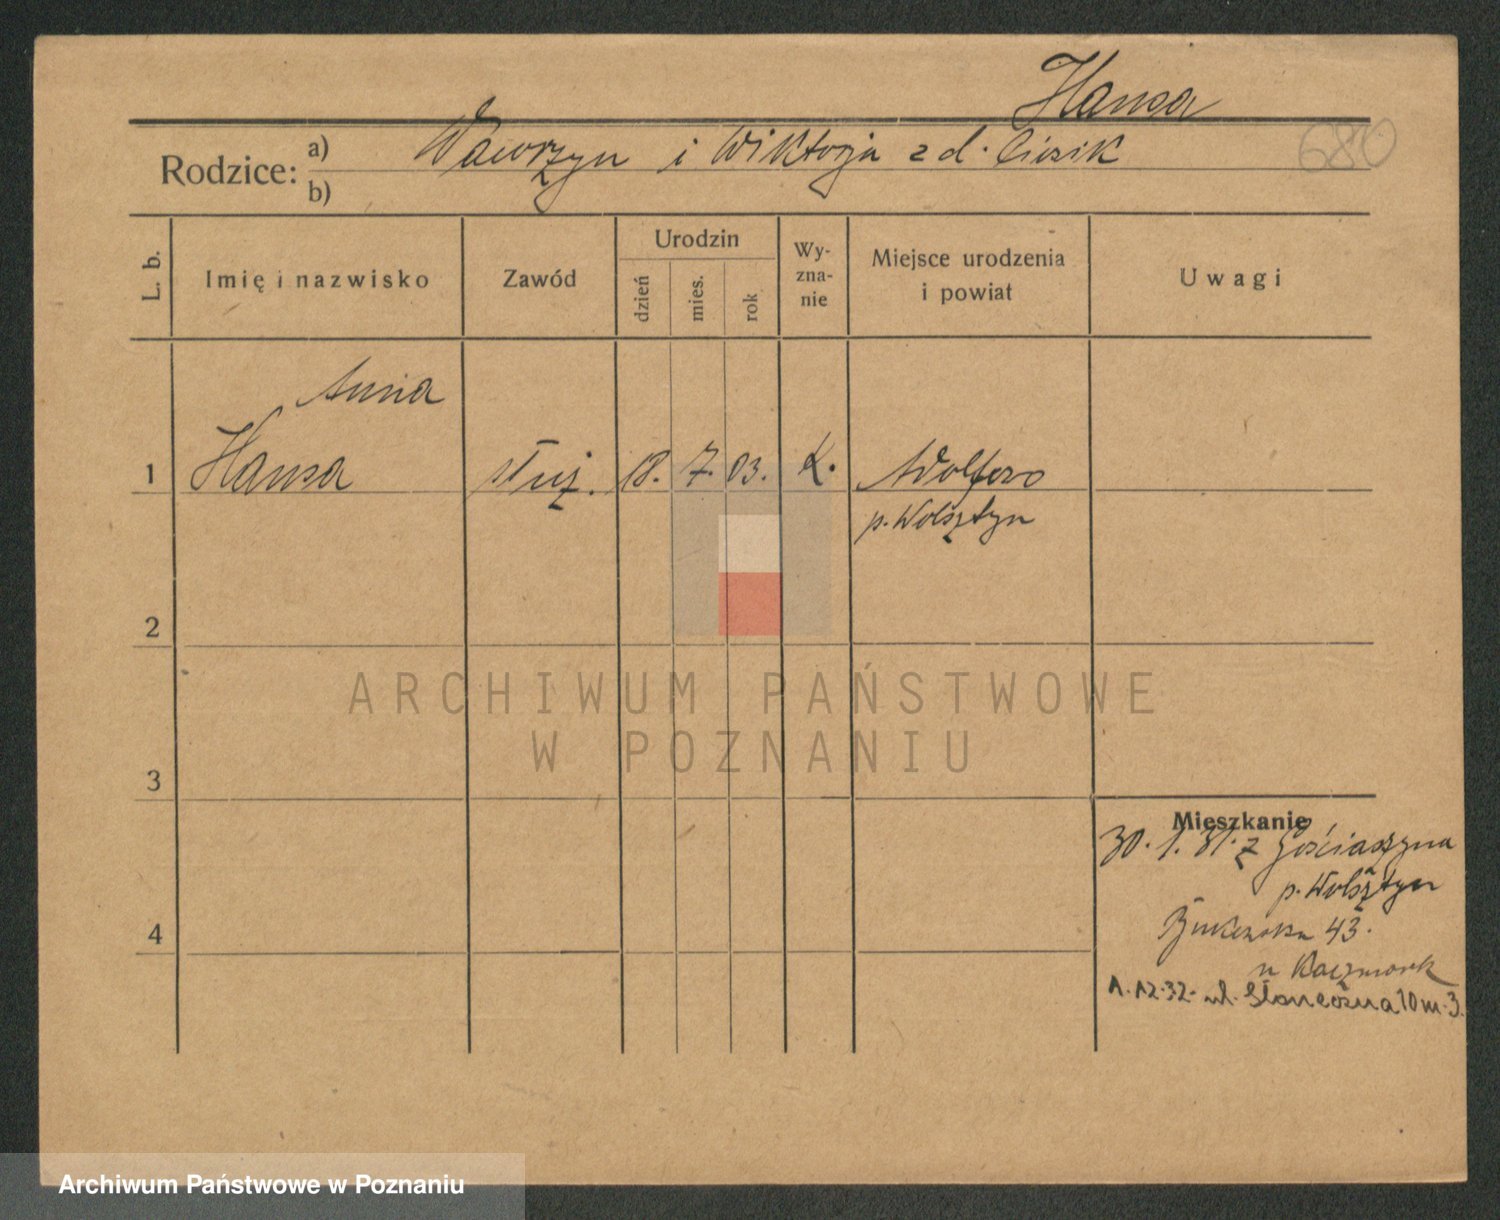 Hansa
680
Rodzice: a) Wawrzyn i Wiktorja z d. Ciesik
b)
L. b.
Imię i nazwisko
Zawód
Urodzin
dzień
mies.
rok
Wy-
zna-
nie
Miejsce urodzenia
i powiat
Uwagi
Anna
1 Hansa służ. 18. 7. 03. k.
p. Wolsztyn
2
ARCHIWUM PAŃSTWOWE
W POZNANIU
3
Mieszkanie
30. 1. 31. z Gościeszyna
p. Wolsztyn
43.
4
u Kaczmarek
1.12.32. ul. Słoneczna 10 m. 3.
Archiwum Państwowe w Poznaniu